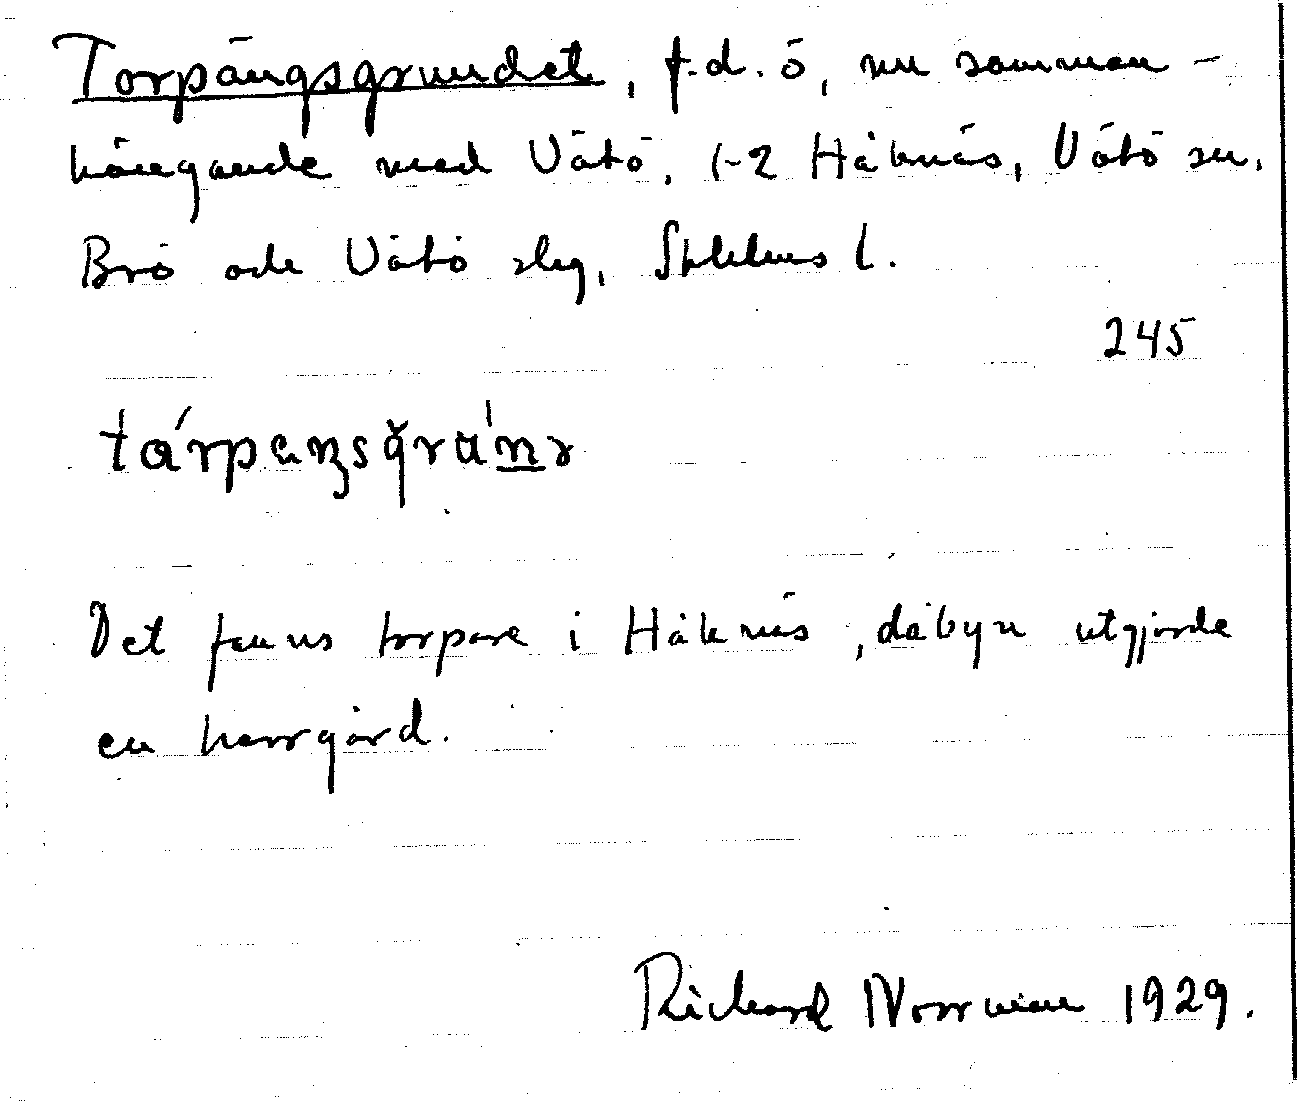 Torpängsgrundet, f.d. ö, nu samman-
hängande med Vätö, 1-2 Håknäs, Vätö sn,
Bro och Vätö slg, Sthlms l.
245
Det fanns torpare i Håknäs, då byn utgjorde
en herrgård.
Richard Norrman 1929.